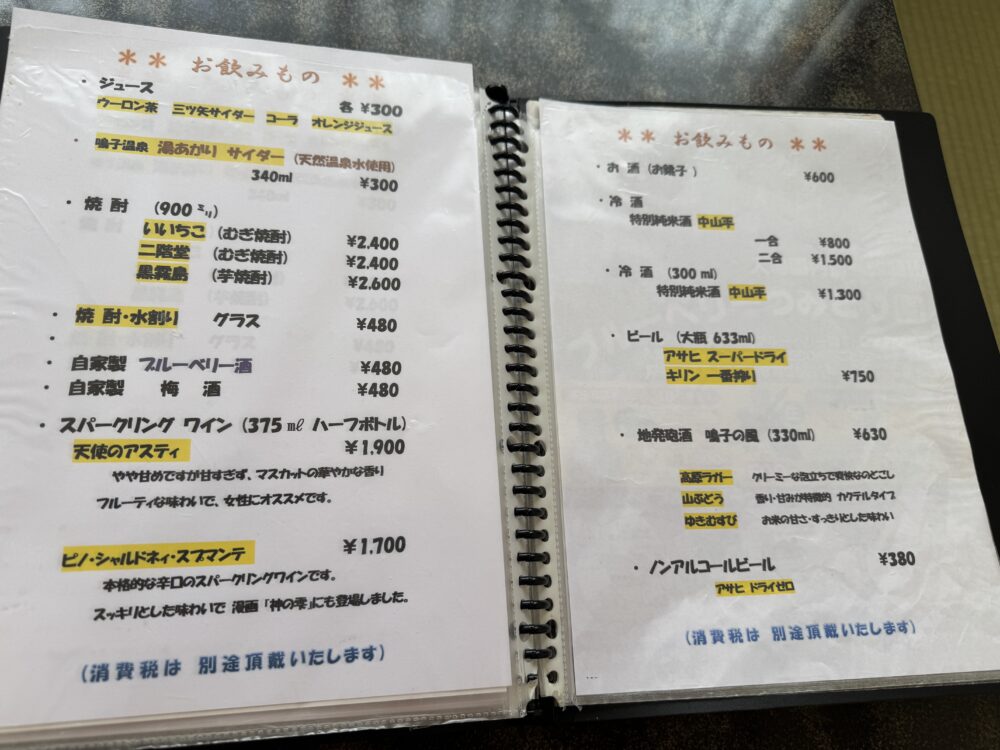 ** お飲みもの **
・ ジュース 各 ¥300
ウーロン茶 三ツ矢サイダー コーラ オレンジジュース
・ 鳴子温泉 湯あがり サイダー (天然温泉水使用)
340ml ¥300
・ 焼 酎 (900㍉)
いいちこ (むぎ焼酎) ¥2.400
二階堂 (むぎ焼酎) ¥2.400
黒霧島 (芋焼酎) ¥2.600
・ 焼 酎・水割り グラス ¥480
・
・ 自家製 ブルーベリー酒 ¥480
・ 自家製 梅 酒 ¥480
・ スパークリング ワイン (375 ㎖ ハーフボトル)
天使のアスティ ¥1.900
やや甘めですが甘すぎず、マスカットの華やかな香り
フルーティな味わいで、女性にオススメです。
ピノ・シャルドネィ・スプマンテ ¥1.700
本格的な辛口のスパークリングワインです。
スッキリとした味わいで 漫画「神の雫」にも登場しました。
(消費税は 別途頂戴いたします)
** お飲みもの **
・ お 酒 (お銚子 ) ¥600
・ 冷 酒
特別純米酒 中山平
一合 ¥800
二合 ¥1.500
・ 冷 酒 (300 ml)
特別純米酒 中山平 ¥1.300
・ ビール (大瓶 633ml)
アサヒ スーパードライ
キリン 一番搾り ¥750
・ 地発砲酒 鳴子の風 (330ml) ¥630
高原ラガー クリーミーな泡立ちで爽快なのどごし
山ぶどう 香り・甘みが特徴的 カクテルタイプ
ゆきむすび お米の甘さ・すっきりとした味わい
・ ノンアルコールビール ¥380
アサヒ ドライゼロ
(消費税は 別途頂戴いたします)